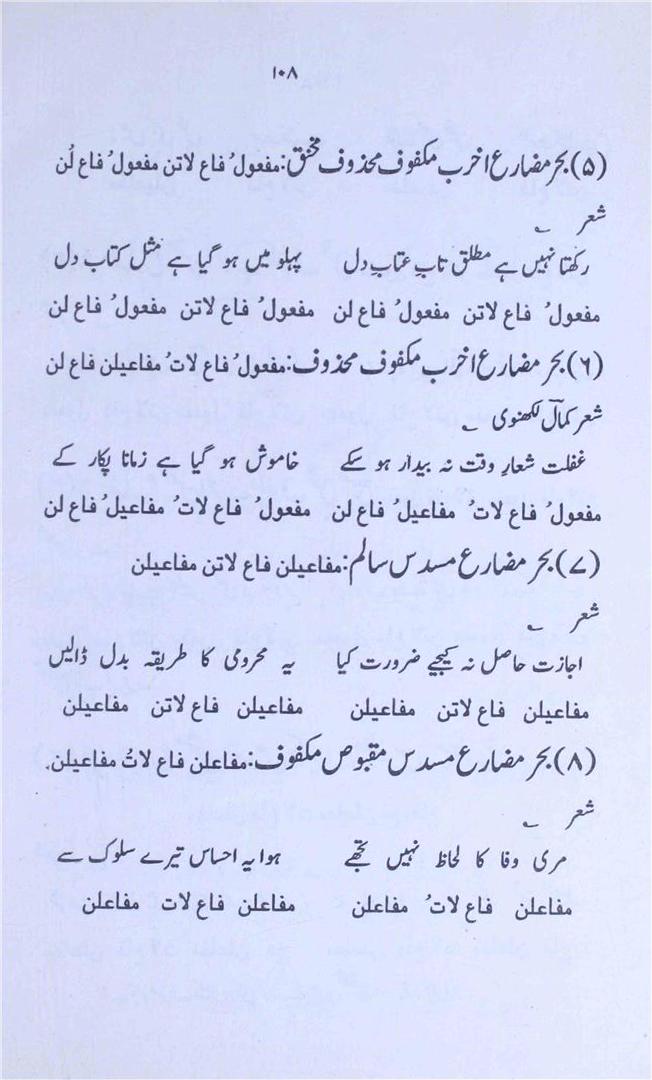 ۱۰۸
(۵) بحر مضارع اخرب مکفوف محذوف مخنق: مفعولُ فاع لاتن مفعولُ فاع لُن
شعر ؎
رکھتا نہیں ہے مطلق تابِ عتابِ دل پہلو میں ہو گیا ہے مثل کتاب دل
مفعولُ فاع لاتن مفعولُ فاع لن مفعولُ فاع لاتن مفعولُ فاع لن
(۶) بحر مضارع اخرب مکفوف محذوف: مفعولُ فاع لاتُ مفاعیلن فاع لن
شعر کمالؔ لکھنوی ؎
غفلت شعارِ وقت نہ بیدار ہو سکے خاموش ہو گیا ہے زمانا پکار کے
مفعولُ فاع لاتُ مفاعیلُ فاع لن مفعولُ فاع لاتُ مفاعیلُ فاع لن
(۷) بحر مضارع مسدس سالم: مفاعیلن فاع لاتن مفاعیلن
شعر ؎
اجازت حاصل نہ کیجیے ضرورت کیا یہ محرومی کا طریقہ بدل ڈالیں
مفاعیلن فاع لاتن مفاعیلن مفاعیلن فاع لاتن مفاعیلن
(۸) بحر مضارع مسدس مقبوص مکفوف: مفاعلن فاع لاتُ مفاعیلن.
شعر ؎
مری وفا کا لحاظ نہیں تجھے ہوا یہ احساس تیرے سلوک سے
مفاعلن فاع لاتُ مفاعلن مفاعلن فاع لات مفاعلن